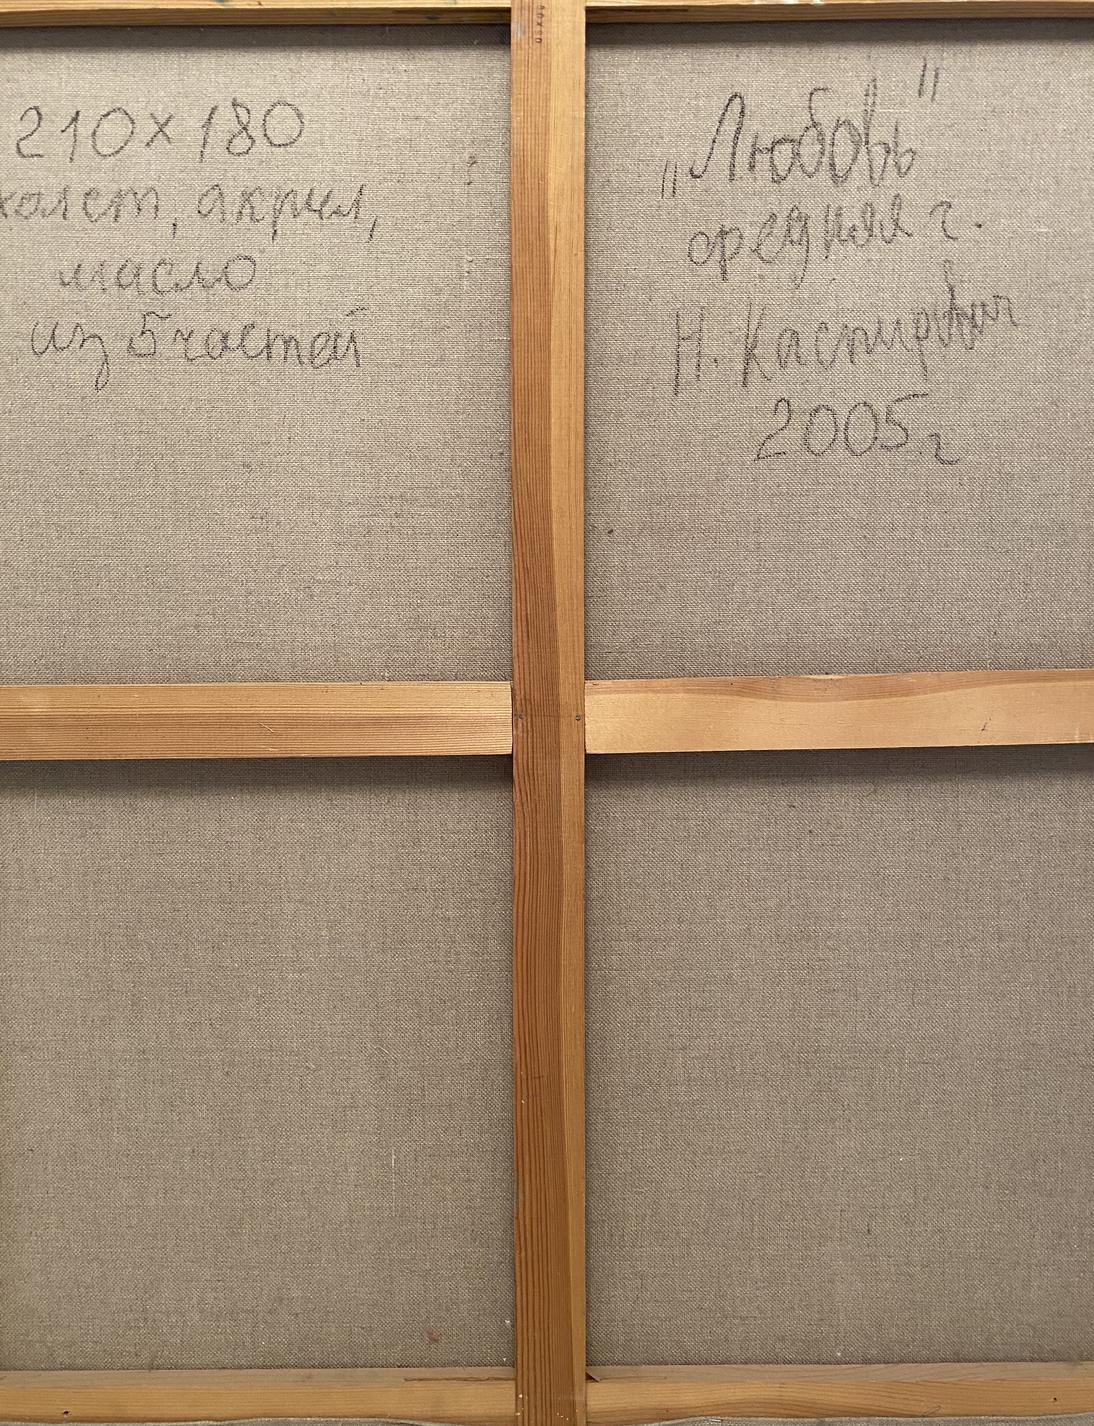 210×180
холст, акрил,
масло
из 5 частей
„Любовь"
средняя ч.
Н. Каспирович
2005.г